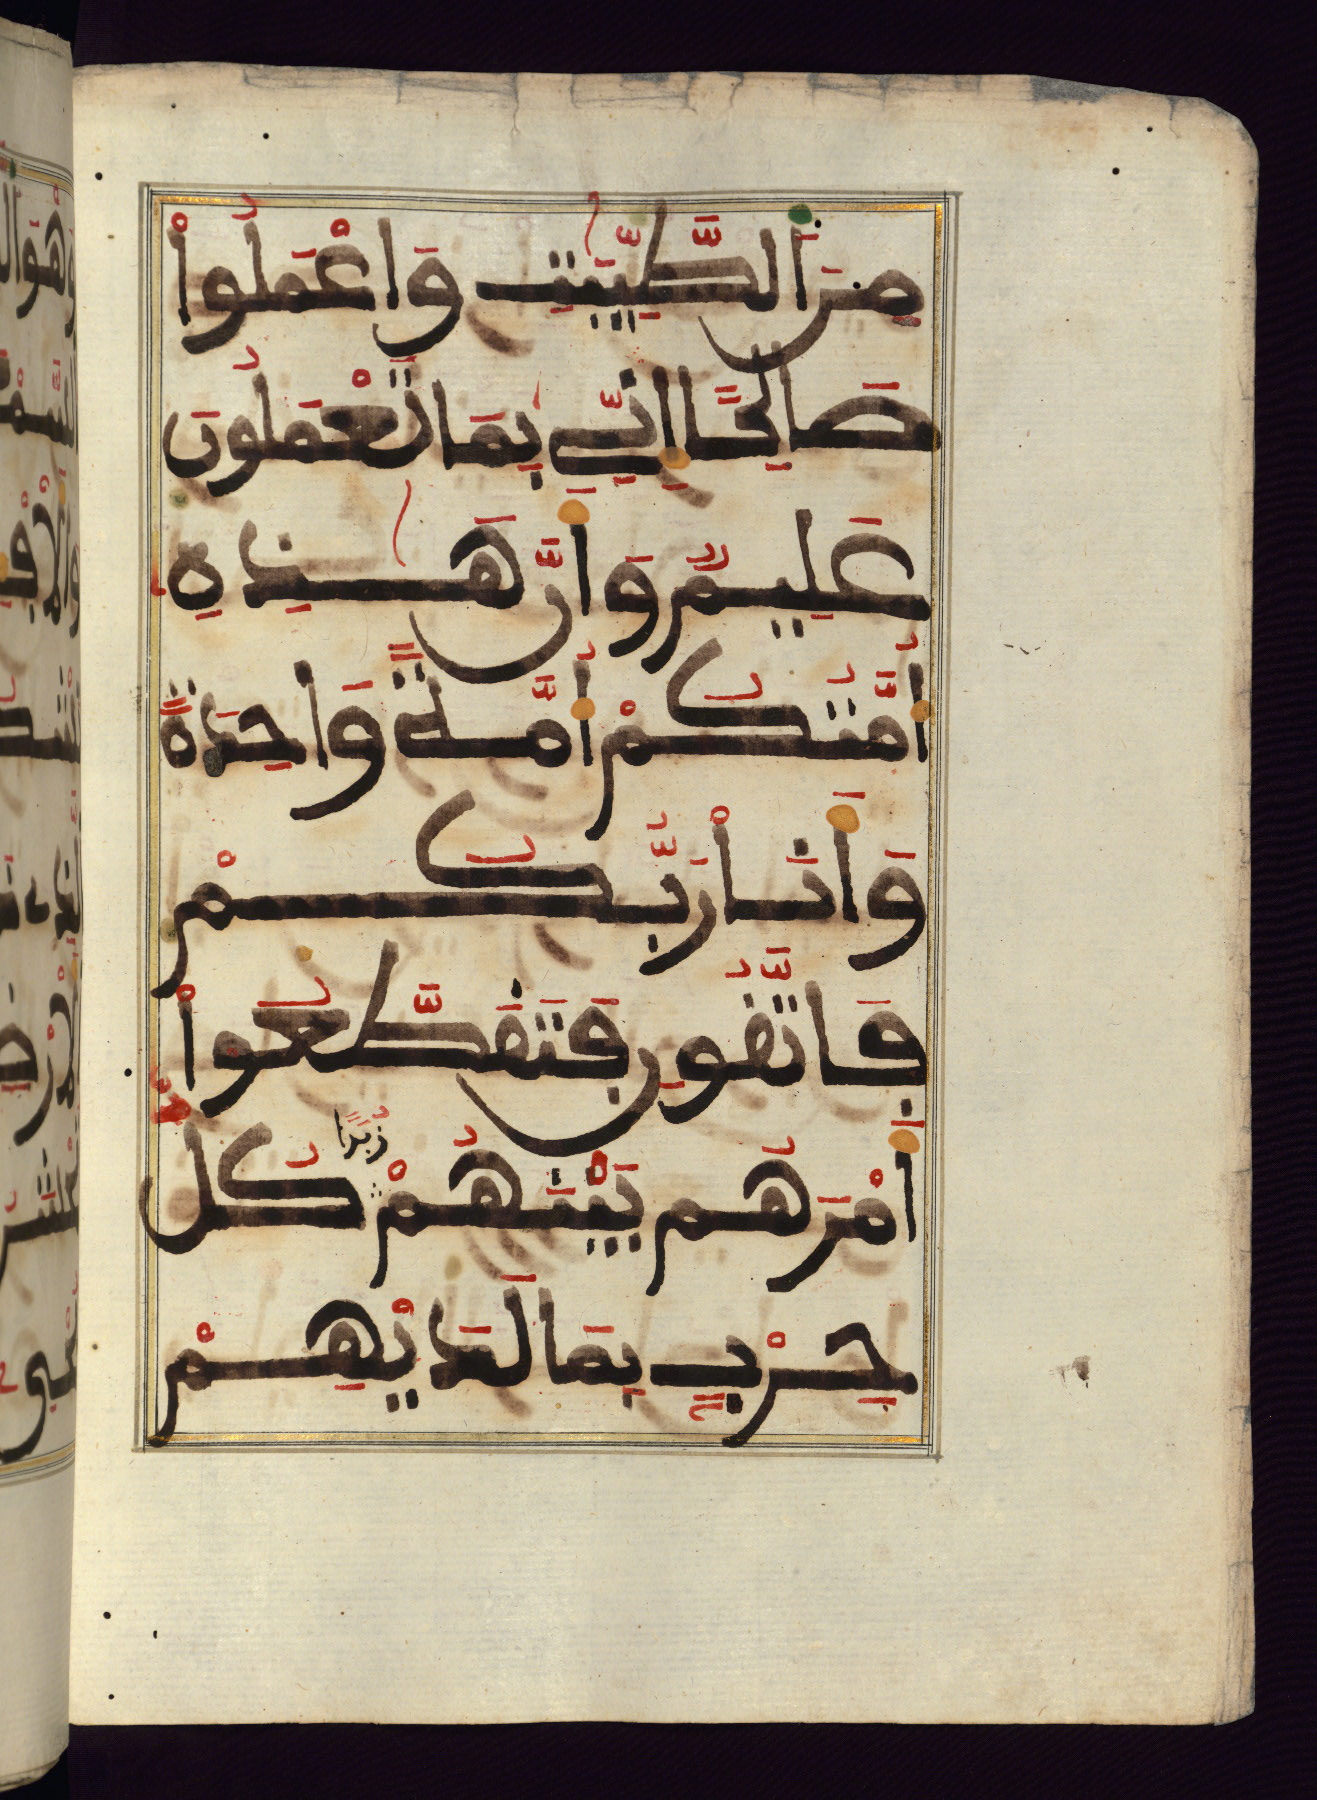 مِنَ اَ۬لطَّيِّبَٰتِ وَاعْمَلُواْ
صَالِحًا اِنِّے بِمَا تَعْمَلُونَ
عَلِيمٌ وَأَنَّ هَٰذِهِ
أُمَّتُكُمْ أُمَّةً وَاحِدَةً
وَأَنَا رَبُّكُمْ
فَاتَّقُونِ فَتَقَطَّعُواْ
أَمْرَهُم بَيْنَهُمْ زُبُرًا كُلُّ
حِزْبٍ بِمَا لَدَيْهِمْ